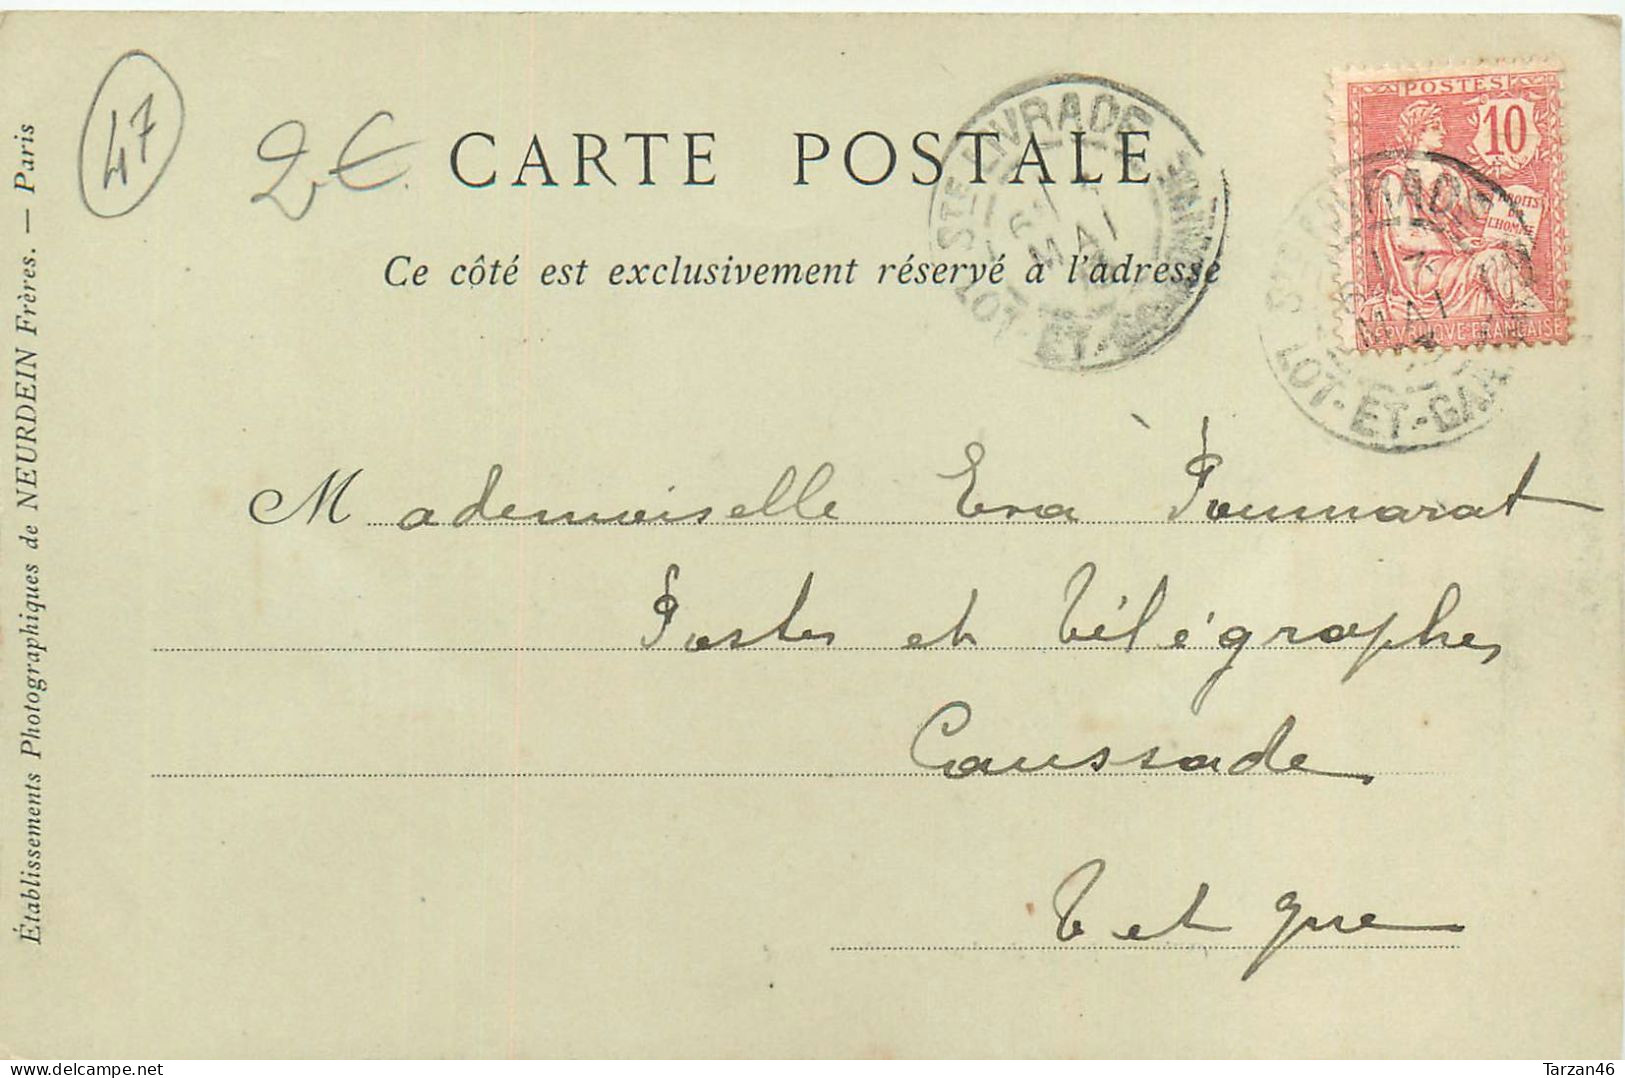 47
2€
CARTE POSTALE
Ce côté est exclusivement réservé à l'adresse
STE LIVRADE
MAI
LOT-ET-GARONNE
POSTES
10
DROITS
DE
L'HOMME
REPUBLIQUE FRANÇAISE
STE LIVRADE
MAI
LOT-ET-GAR
Mademoiselle Eva Pommarat
Postes et Télégraphes
Caussade
T et gne
Établissements Photographiques de NEURDEIN Frères. — Paris
Tarzan46